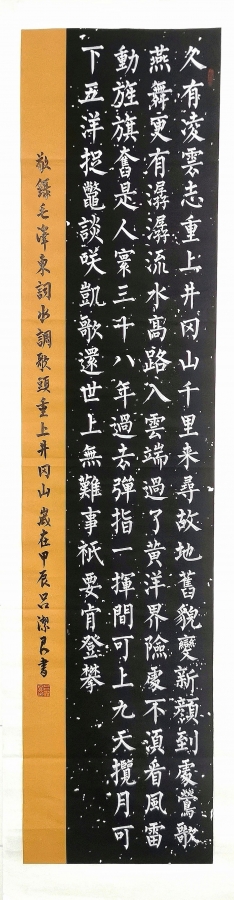 久有淩雲志重上井冈山千里来尋故地舊貌變新顏到處鶯歌
燕舞更有潺潺流水髙路入雲端過了黄洋界險處不湏看風雷
動旌旗奮是人寰三十八年過去彈指一揮間可上九天攬月可
下五洋捉鼈談咲凱歌還世上無難事衹要肯登攀
敬錄毛澤東詞水調歌頭重上井冈山 歲在甲辰吕潔書